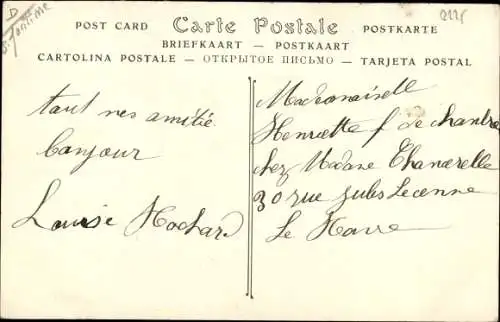 POST CARD Carte Postale POSTKARTE
BRIEFKAART — POSTKAART
CARTOLINA POSTALE — ОТКРЫТОЕ ПИСЬМО — TARJETA POSTAL
tout mes amitié
Bonjour
Louise Hochard
Mademoiselle
Henriette f de chambre
chez Madame
30 rue Jules Lecenne
Le Havre